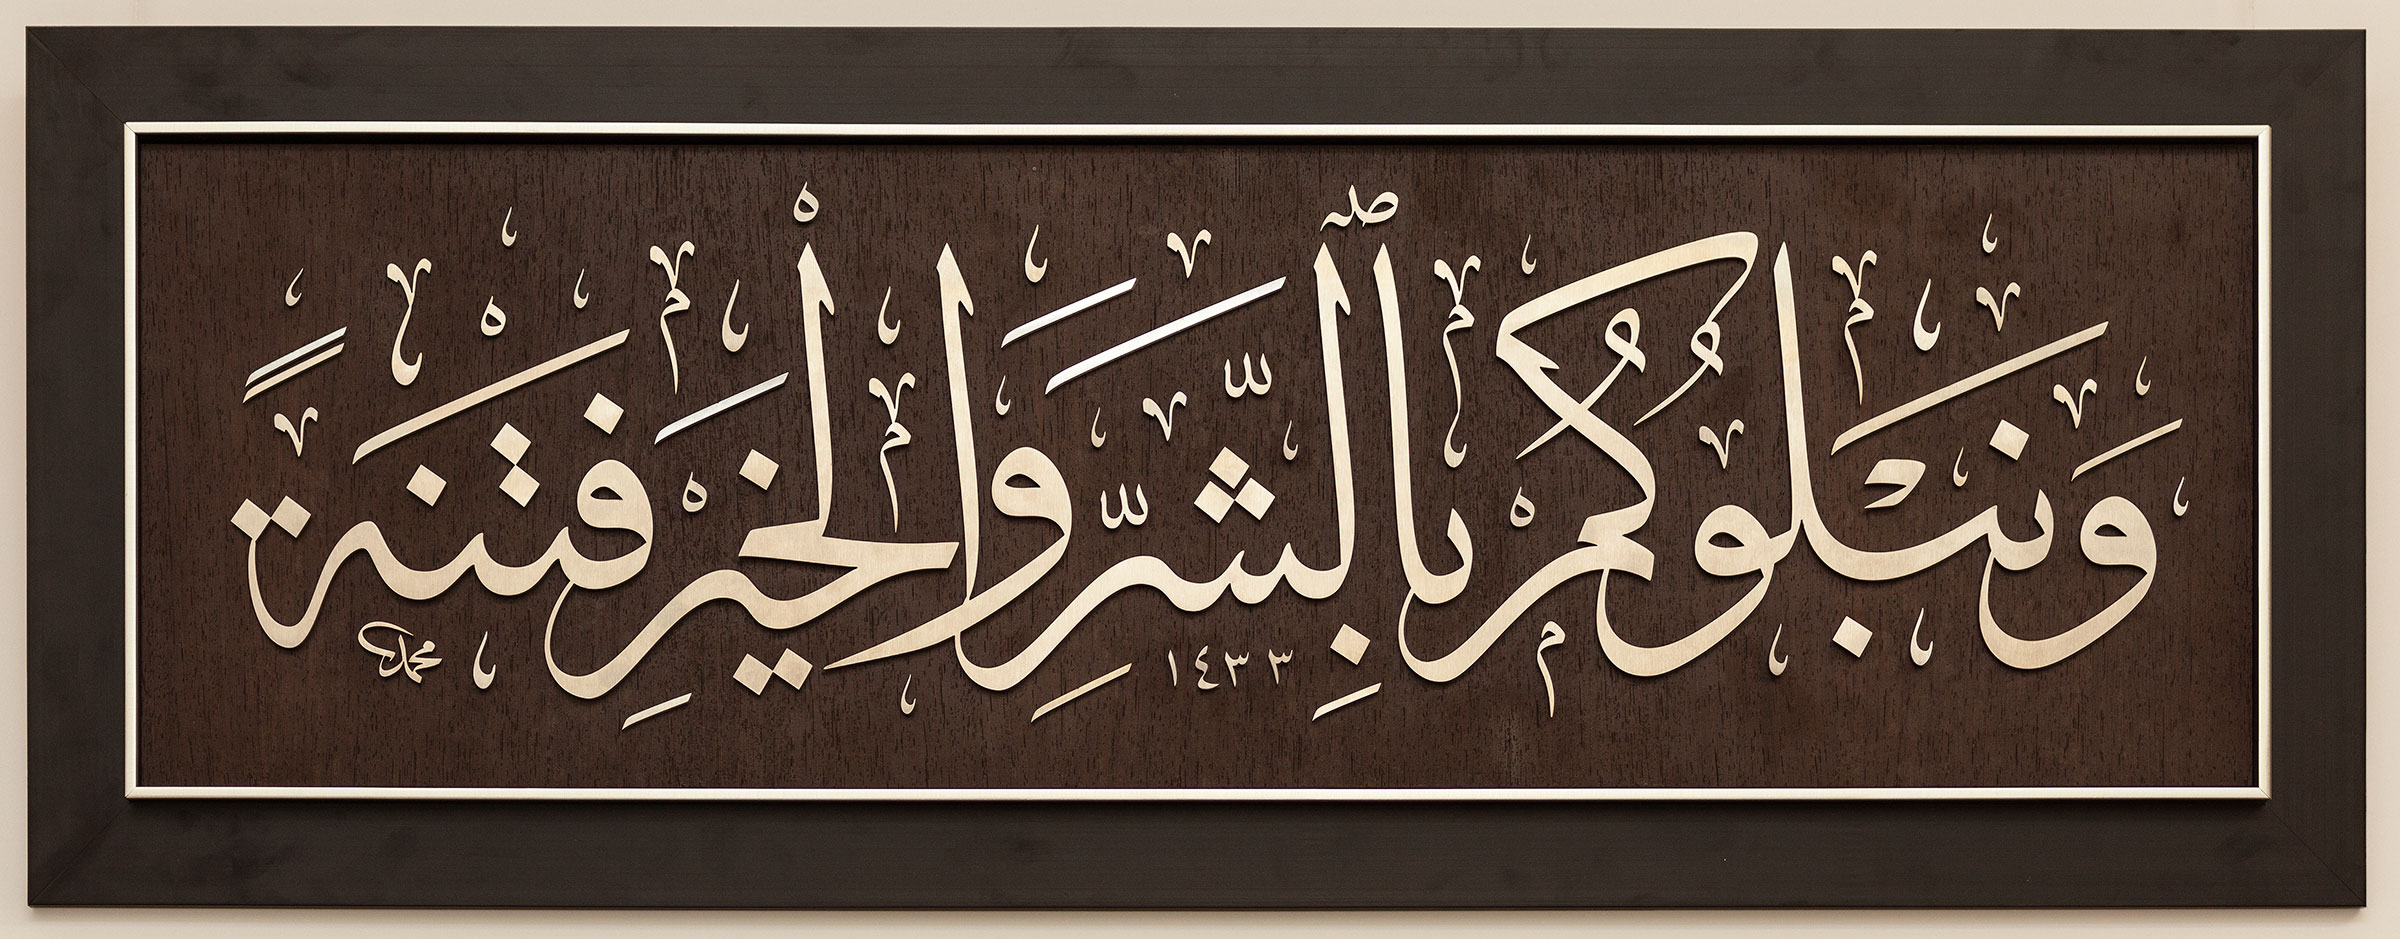 وَنَبْلُوكُمْ بِالشَّرِّ وَالْخَيْرِ فِتْنَةً
١٤٣٣
محمد